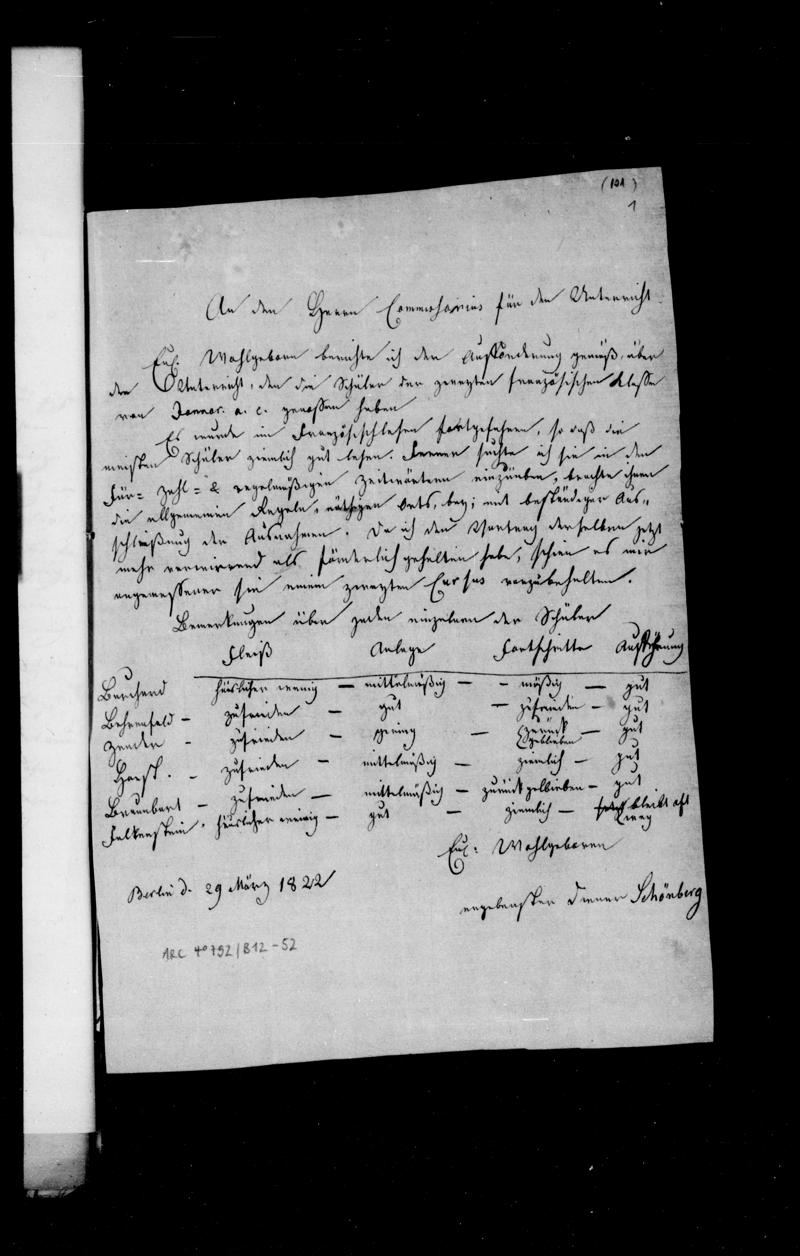 (101)
1
An den Herrn Commissarius für den Unterricht
Ew. Wohlgeborn berichte ich der Aufforderung gemäß, über
den Unterricht, den die Schüler der zweyten französischen Klasse
von Januar. a. c. genossen haben
Es wurde im Französischlesen fortgefahren, so daß die
meisten Schüler ziemlich gut lesen. Ferner suchte ich sie in den
Für- Zahl- & regelmäßigen Zeitwörtern einzuüben, brachte ihnen
die allgemeinen Regeln, nöthigen Orts, bey; mit beständiger Aus-
schließung der Ausnahmen. Da ich den Vortrag derselben jetzt
mehr verwirrend als förderlich gehalten habe, schien es mir
angemessener sie einem zweyten Cursus vorzubehalten.
Bemerkungen über jeden einzelnen der Schüler
Fleiß Anlage Fortschritte Aufführung
Burchard häuslicher wenig — mittelmäßig — mäßig — gut
Behrenfeld — zufrieden — gut — zufrieden — gut
Zender — zufrieden — gering — zurück geblieben — gut
— zufrieden — mittelmäßig — ziemlich — gut
Braunbart — zufrieden — mittelmäßig — zurückgeblieben — gut
Falkenstein häuslicher wenig — gut — ziemlich — bleibt oft weg
Ew. Wohlgeboren
Berlin d. 29 März 1822
ergebenster Diener Schönberg
ARC 4° 792/B12-52